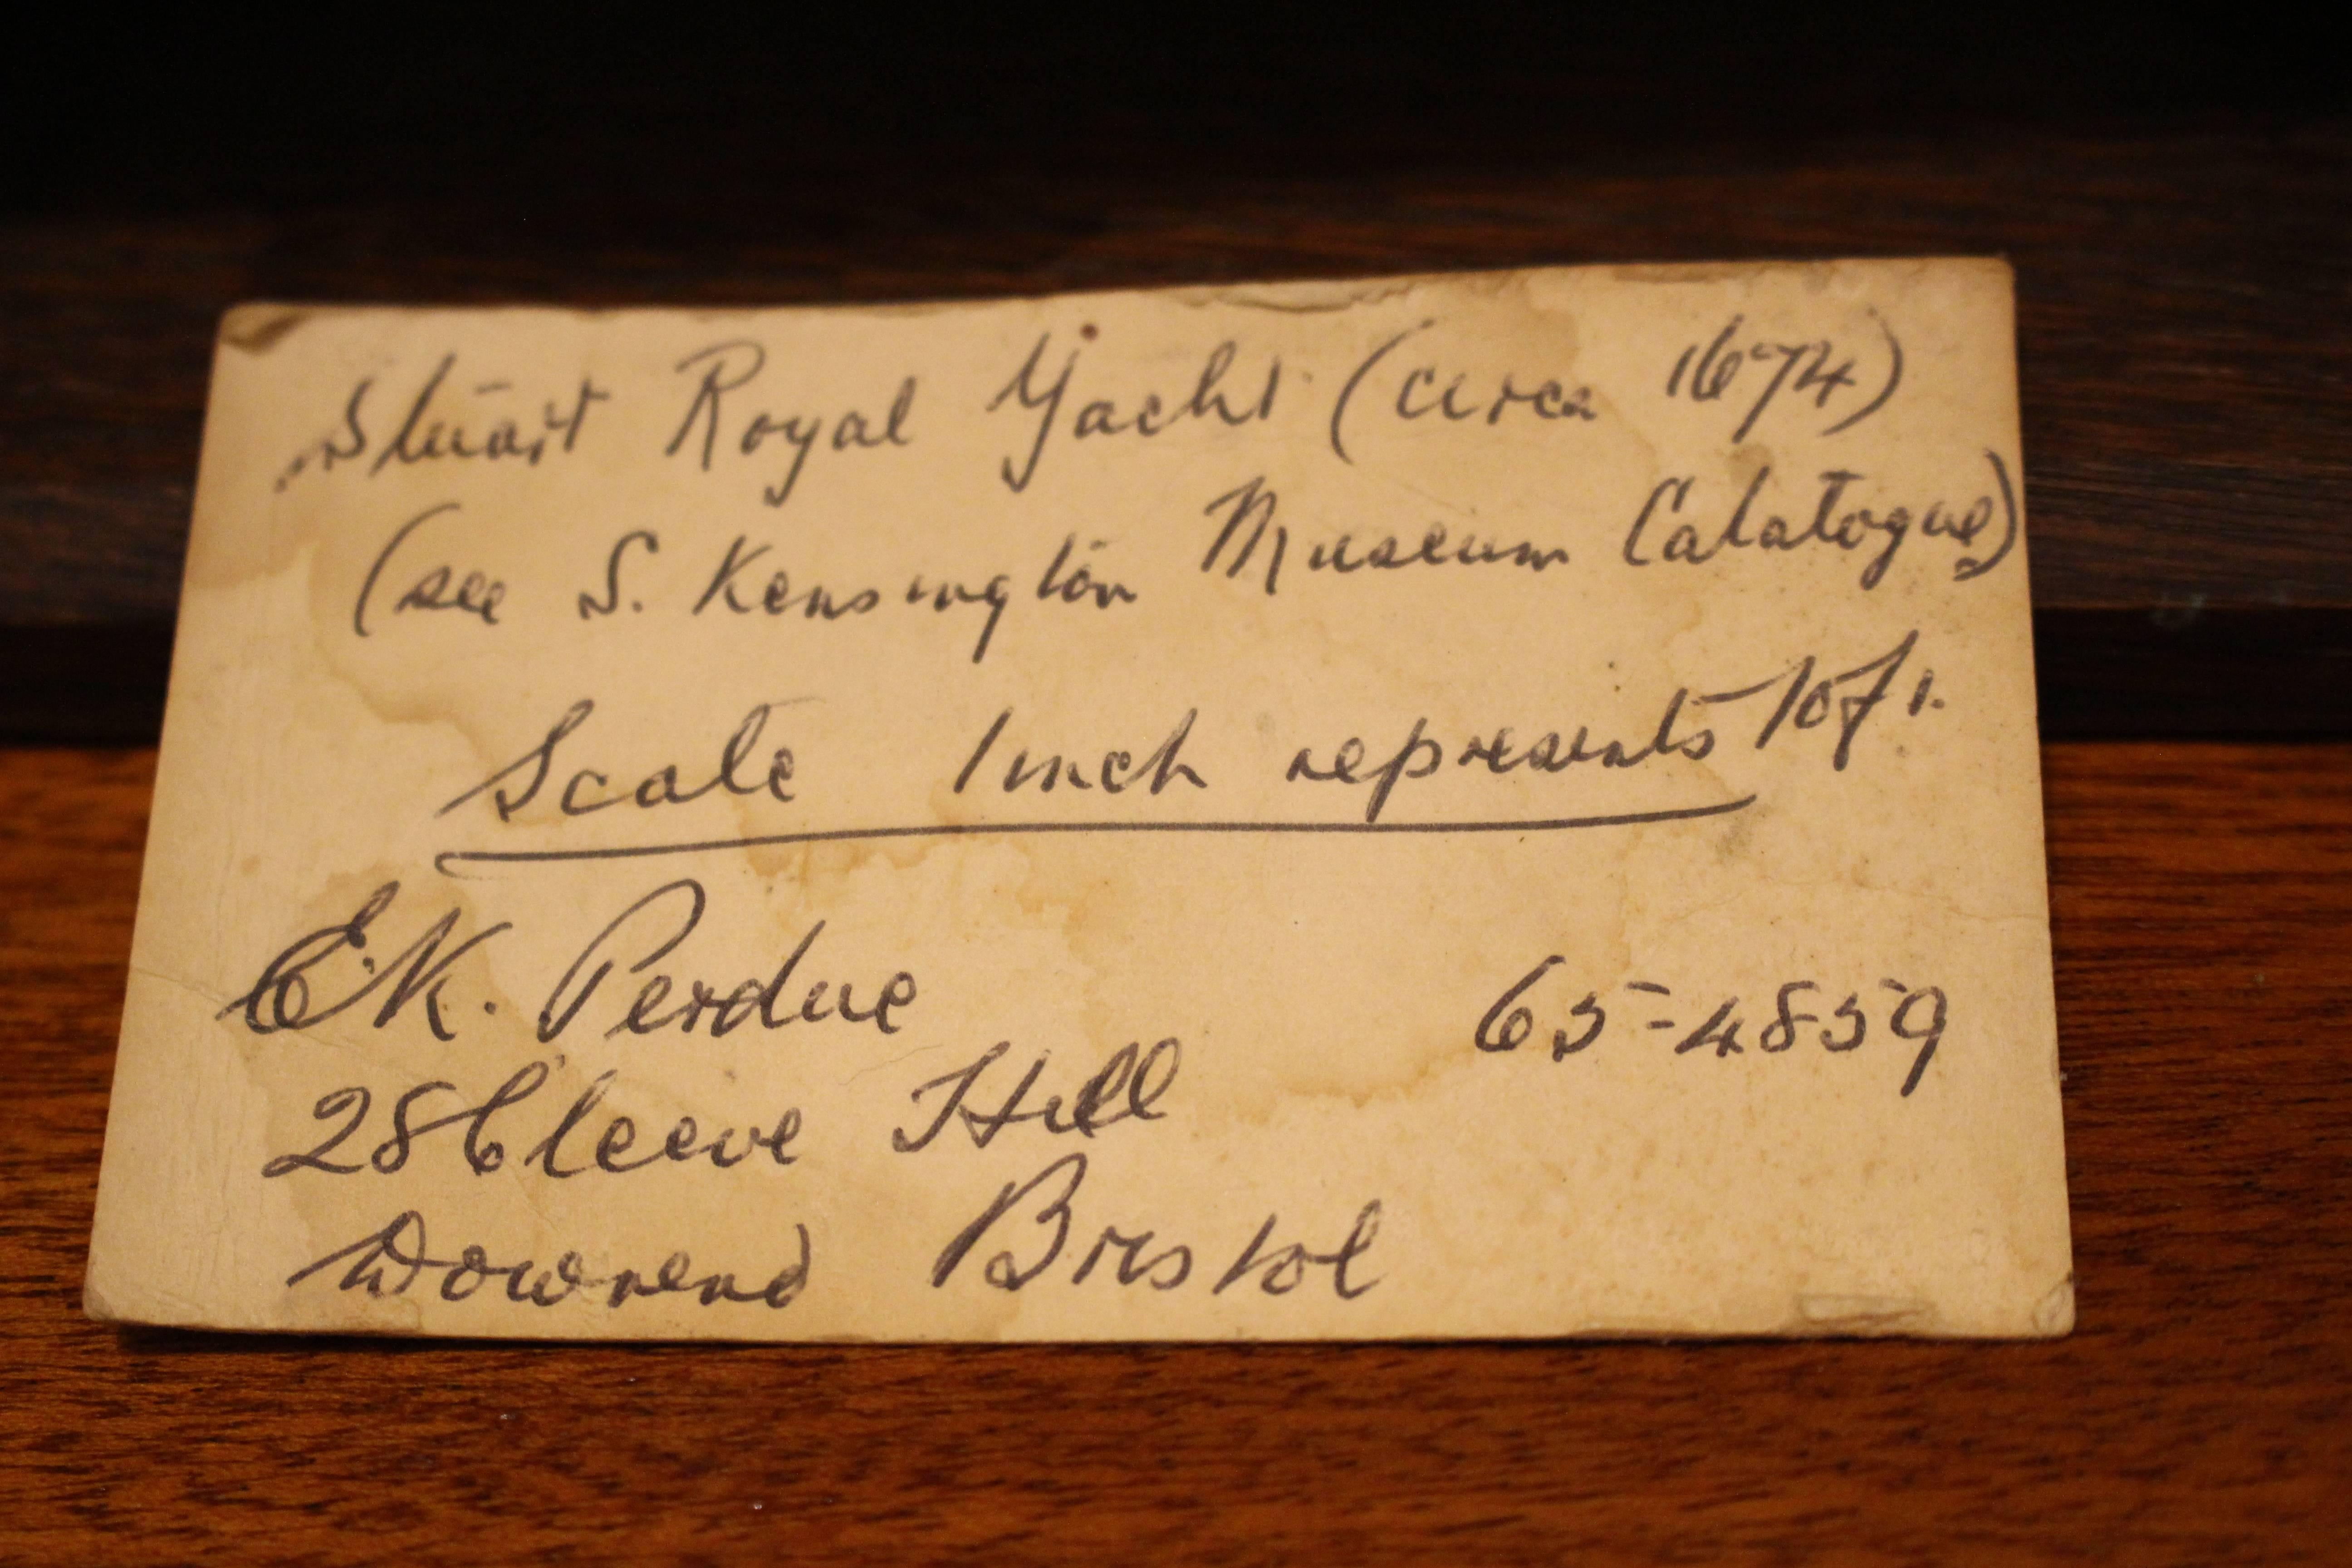 Stuart Royal Yacht (circa 1674)
(see S. Kensington Museum Catalogue)
Scale 1 inch represents 10 ft.
E.K. Perdue
65-4859
28 Cleeve Hill
Downend Bristol